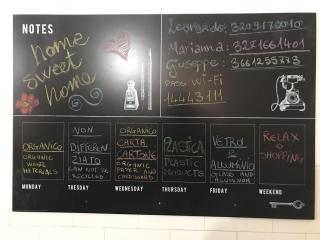 NOTES
home
sweet
home
Leonardo: 3209170010
Marianna: 3271661401
Giuseppe: 3661255773
PASS Wi-Fi
14443111
ORGANICO
ORGANIC
WASTE
MATERIALS
MONDAY
NON
DIFFEREN
ZIATO
CAN NOT BE
RECYCLED
TUESDAY
ORGANICO
CARTA
CARTONE
ORGANIC
PAPER AND
CARDBOARD
WEDNESDAY
PLASTICA
PLASTIC
PRODUCTS
THURSDAY
VETRO
E
ALLUMINIO
GLASS AND
FRIDAY
RELAX
O
SHOPPING
WEEKEND